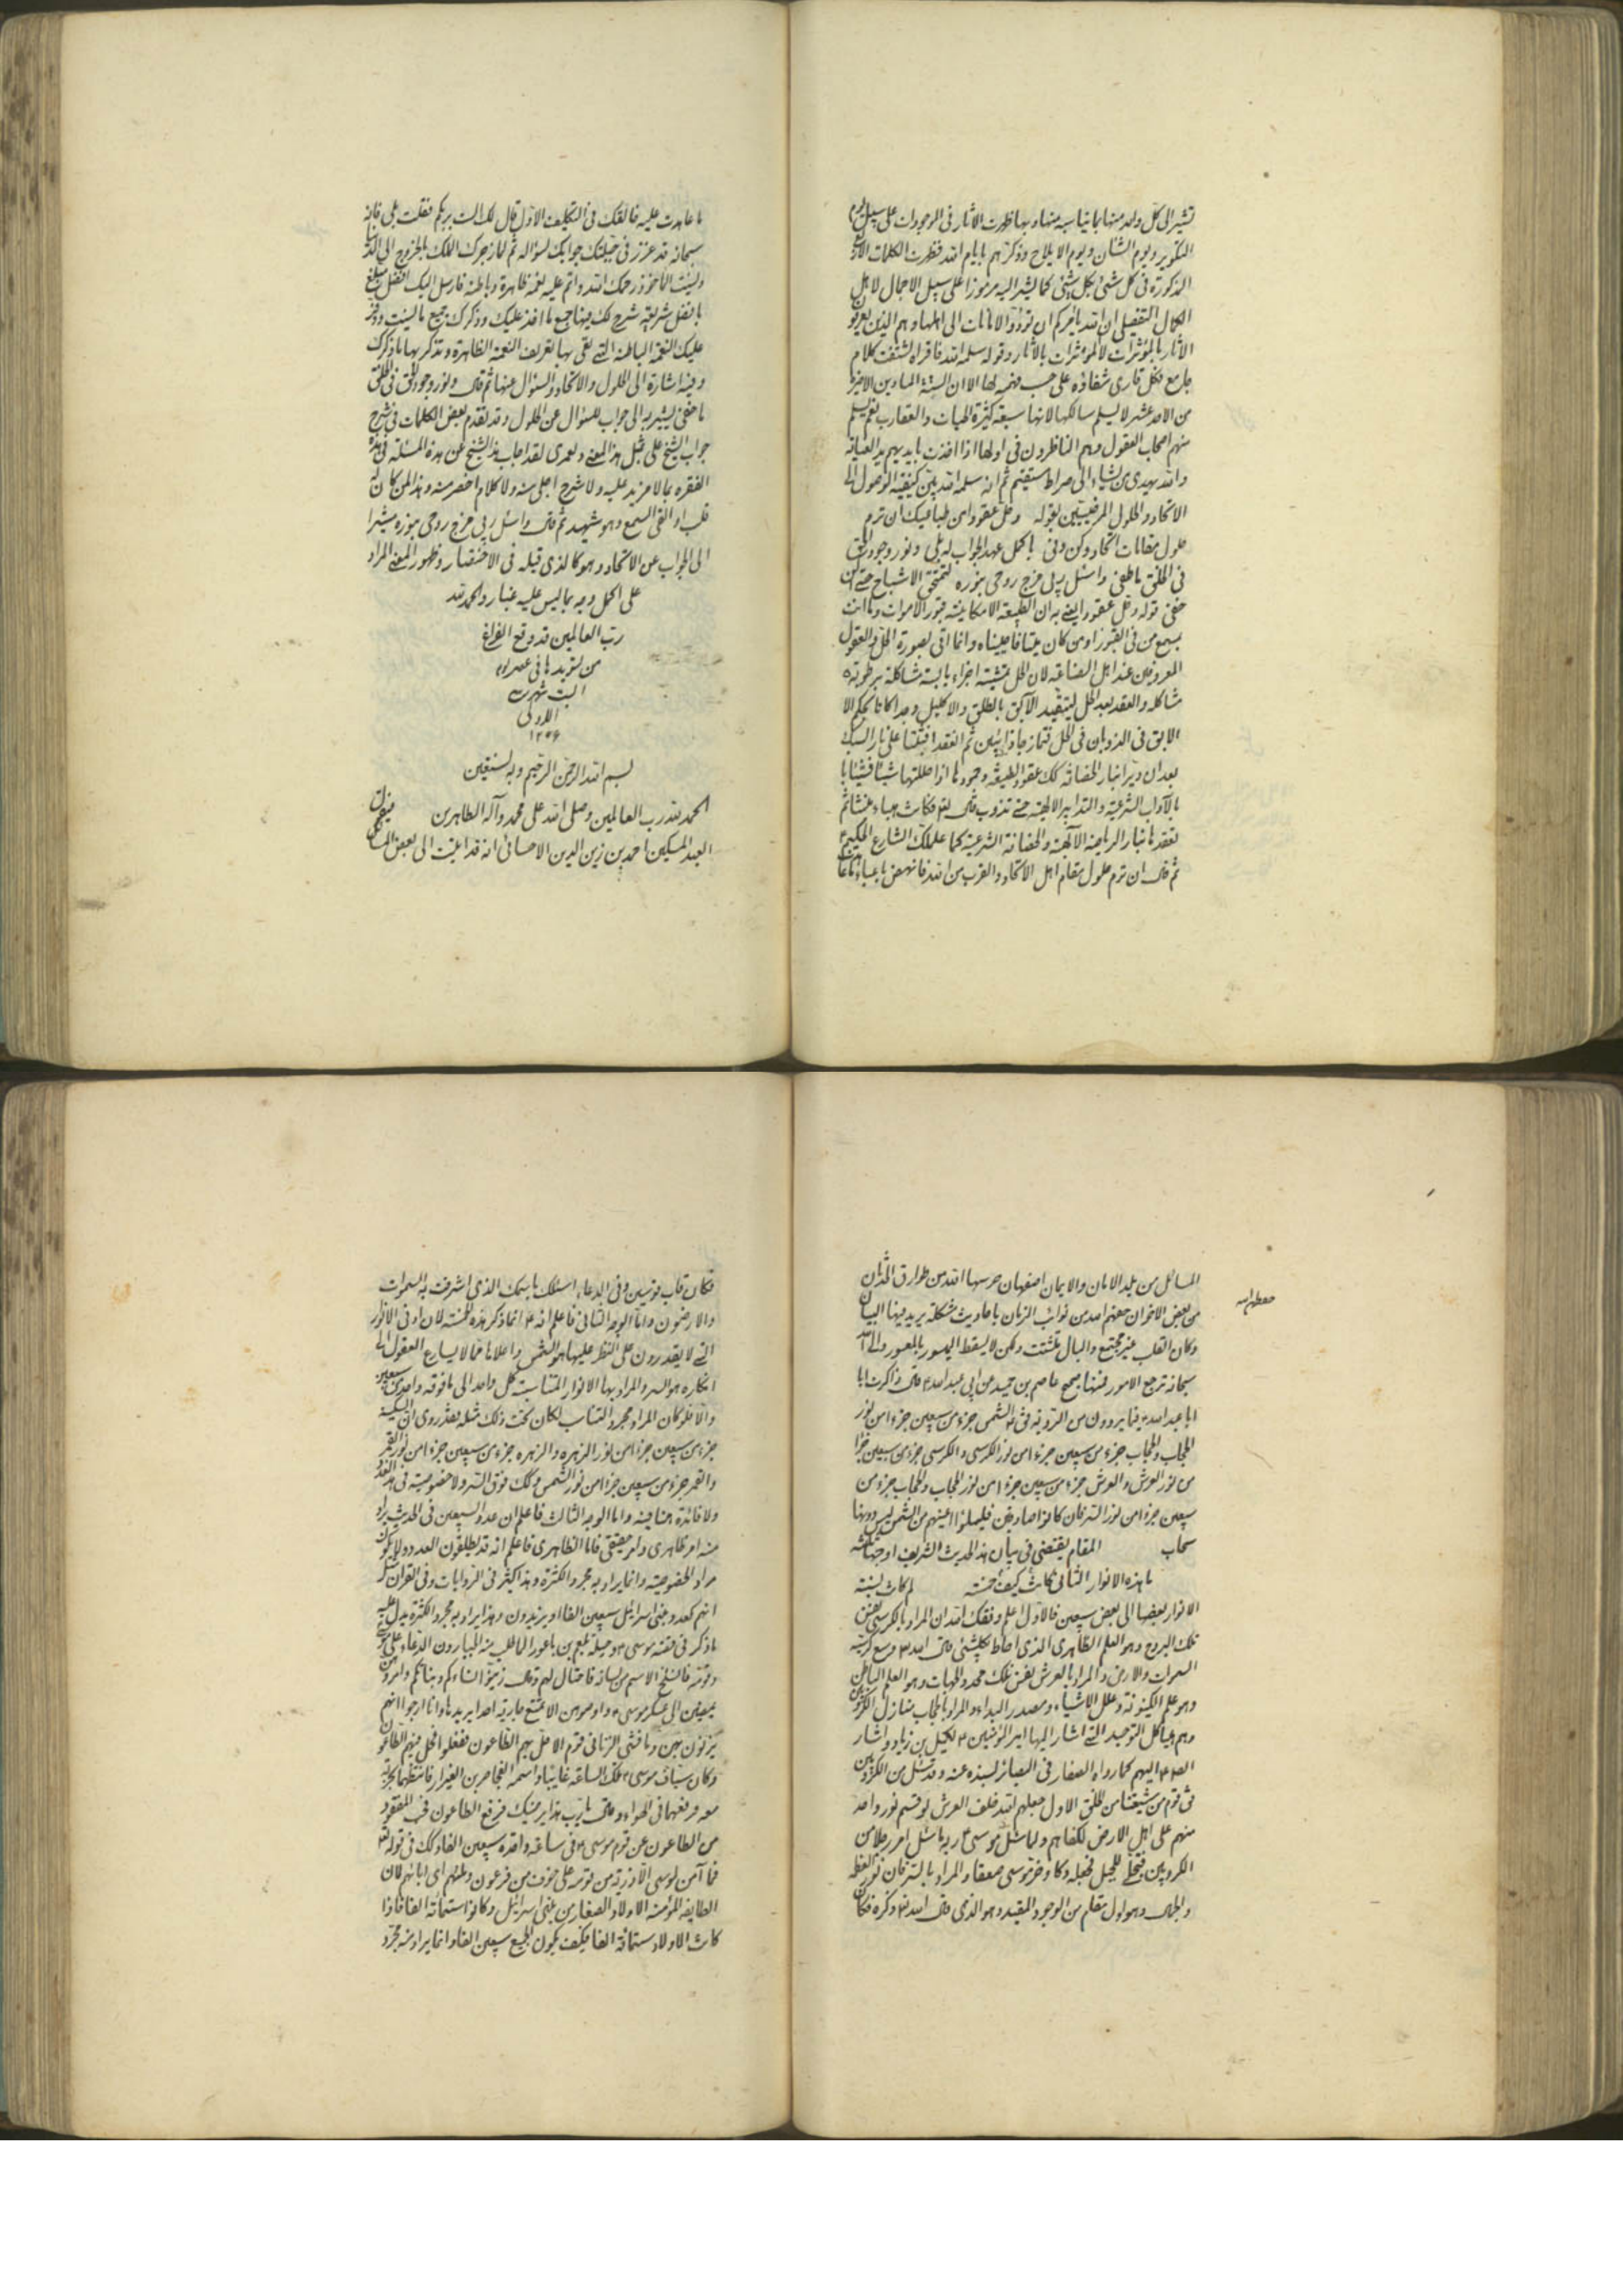 تشير الى كل واحد منها بما يناسبه منها وبها ظهرت الآثار فى الموجودات على سبيل
التكوير ويوم الشان ويوم الايلاج وذكرهم بايام الله فظهرت الكلمات
المذكورة فى كل شئ بكل شئ كما يشير اليه مرموزا على سبيل الاجمال لاهل
الكمال التفصيلى ان الله يامركم ان تؤدوا الامانات الى اهلها وهم الذين يعرفون
الآثار بالمؤثرات لا المؤثرات بالآثار وقوله سلمه الله فاقراه
جامع فكل قارى شفاؤه على حسب فهمه لها الا ان الستة الميادين الاخيرة
من الاحد عشر لا يسلم سالكها لانها سبعة كثيرة الحيات والعقارب نعم يسلم
منهم اصحاب العقول وهم الناظرون فى اولها اذا اخذت بايديهم يد العناية
والله يهدى من يشاء الى صراط مستقيم ثم انه سلمه الله بين كيفية الوصول الى
الاتحاد والحلول المرضيين بقوله وحل عقودا من طبا فيك ان ترم
حلول مقامات اتحاد وكن وفى باكمل عهد الجواب له بلى ونور وجود الحق
فى الخلق ما خفى واسئل ربى مزج روحى بنوره
خفى قوله وحل عقودا يعنى به ان الطبيعة الامكانية قبور الاموات وما انت
بمسمع من فى القبور اومن كان ميتا فاحييناه وانما اتى بصورة الحل والعقد
المعروفين عند اهل الصناعة لان الحل تمشية اجزاء يابسة مشاكلة برطوبة
مشاكلة والعقد بعد الحل ليتقيد الآبق بالطلق والاكليل
الابق فى الذوبان فى الحل فتمازجا ذائبين ثم انعقدا على نار السبك
بعد ان دبرا بنار الحضانة كك عقود الطبيعة وجمودها اذا حللتها شيئا فشيئا
بالآداب الشرعية والتدابير الالهية حتى تذوب قال تعالى فكانت هباء منبثا ثم
تعقدها بنار الالهية والحضانة الشرعية كما علمك الشارع الحكيم
ثم قال ان ترم حلول مقام اهل الاتحاد والقرب من الله فانهض باعباء
ما عاهدت عليه خالقك فى التكليف الاول قال لك الست بربكم فقلت بلى فانه
سبحانه قد غرز فى جبلتك جوابك لسؤاله ثم لما زجرك الملك بالخروج الى الدنيا
ونسيت المأخوذ رحمك الله واتم عليه نعمه ظاهرة وباطنة فارسل اليك افضل مبلغ
بافضل شريعة شرح لك فيها جميع ما اخذ عليك وذكرك جميع ما نسيت
عليك النعمة الباطنة التى تلقى بها تعريف النعمة الظاهرة وتتذكر بها ما ذكرك
وفيه اشارة الى الحلول والاتحاد والسؤال عنها ثم قال ونور وجود الحق فى الخلق
ما خفى يشير به الى جواب السؤال عن الحلول وقد تقدم بعض الكلمات فى شرح
جواب الشيخ على مثل هذا المعنى ولعمرى لقد اجاب هذا الشيخ عن هذه المسئلة فى هذه
الفقره بما لا مزيد عليه ولا شرح اجلى منه ولا كلام اخصر منه وهذا لمن كان له
قلب او القى السمع وهو شهيد ثم قال واسئل ربى مزج روحى بنوره مشيرا
الى الجواب عن الاتحاد وهو كالذى قبله فى الاختصار وظهور المعنى المراد
على اكمل وجه بما ليس عليه غبار والحمد لله
رب العالمين قد وقع الفراغ
من تسويدها فى عصر يوم
السبت شهر
الاولى
بسم الله الرحمن الرحيم وبه نستعين
الحمد لله رب العالمين وصلى الله على محمد وآله الطاهرين فيقول
العبد المسكين احمد بن زين الدين الاحسائى انه قد اتت الى بعض المسائل
المسائل من بلد الامان والايمان اصفهان حرسها الله من طوارق الحدثان
من بعض الاخوان حفظهم الله من نوائب الزمان باحاديث مشكلة يريد بيانها
وكان القلب غير مجتمع والبال متشتت ولكن لا يسقط الميسور بالمعسور والى الله
سبحانه ترجع الامور فمنها صحيح عاصم بن حميد عن ابى عبد الله ع قال ذاكرت ابا
ابا عبد الله ع فيما يروون من الرؤية فق ع الشمس جزء من سبعين جزءا من نور
الكرسى والكرسى جزء من سبعين جزءا
من نور العرش والعرش جزء من سبعين جزءا من نور الحجاب والحجاب جزء من
سبعين جزءا من نور الستر فان كانوا صادقين فليملؤا اعينهم من الشمس ليس دونها
سحاب المقام يقتضى فى بيان هذا الحديث الشريف اوجها
ما هذه الانوار الثانى كانت خمسة لم كانت نسبة
الانوار بعضها الى بعض سبعين فالاول اعلم وفقك الله ان المراد بالكرسى نفس
فلك البروج وهو العلم الظاهرى الذى احاط بكلشئ قال الله تعالى وسع كرسيه
السموات والارض والمراد بالعرش نفس فلك محدد الجهات وهو العلم الباطن
وهو علم الكيفوفة وعلل الاشياء ومصدر البداء والمراد بالحجاب منازل الكروبيين
وهم هياكل التوحيد التى اشار اليها امير المؤمنين ع لكميل بن زياد واشار
اليهم كما رواه الصفار فى البصائر بسنده عنه وقد سئل عن الكروبيين
ق قوم من شيعتنا من الخلق الاول جعلهم الله خلف العرش لو قسم نور واحد
منهم على اهل الارض لكفاهم ولما سئل موسى ع ربه ما سئل امر رجلا من
الكروبيين فتجلى للجبل فجعله دكا وخر موسى صعقا والمراد بالستر نور العظمة
والجلال وهو اول مقام من الوجود المقيد وهو الذى قال الله تعالى ذكره فكان
فكان قاب قوسين وفى الدعاء اسئلك باسمك الذى اشرقت به السموات
والارضون واما الوجه الثانى فاعلم انه ع انما ذكر هذه الخمسة لان ادنى الانوار
التى لا يقدرون على النظر عليها هو الشمس واعلاها مما لا يسارع العقول الى
انكاره هو الستر والمراد بها الانوار المتناسبة كل واحد الى ما فوقه واحد من سبعين
والا فلو كان المراد مجرد التناسب لكان تحت ذلك مثله فقد روى ان السكينة
جزء من سبعين جزءا من نور الزهرة والزهره جزء من سبعين جزءا من نور القمر
والقمر جزء من سبعين جزءا من نور الشمس وكك فوق الستر ولا خصوصية فى هذا العدد
ولا فائدة هنا فيه واما الوجه الثالث فاعلم ان عدد السبعين فى الحديث يراد
منه امر ظاهرى وامر حقيقى فاما الظاهرى فاعلم انه قد يطلقون العدد ولا يكون
مراد الخصوصية وانما يراد به مجرد الكثرة وهذا كثير فى الروايات وفى القران مثل
انهم كعدد بنى اسرائيل سبعين الفا او يزيدون وهذا يراد به مجرد الكثرة يدل عليه
ما ذكر فى قصة موسى ع وحيلة بلعم بن باعورا لما طلب منه الجبارون الدعاء على موسى
وقومه فانسلخ الاسم من لسانه فاحتال لهم وقال زينوا نساءكم وبناتكم وامروهن
يمضين الى عسكر موسى ع واوصوهن الا تمتنع جارية احدا يريدها وانا ارجوا انهم
يزنون بهن وما فشى الزنا فى قوم الا حل بهم الطاعون ففعلوا فحل فيهم الطاعون
وكان سياف موسى ع تلك الساعة غايبا واسمه الفحاص بن الغيرار فانتظمها بحربة
معه ورفعهما فى الهواء وقال يا رب هذا يرضيك فرفع الطاعون فحسب المفقود
من الطاعون من قوم موسى ع فى ساعة واحدة سبعين الفا وكك فى قوله تعالى
فما آمن لموسى الا ذرية من قومه على خوف من فرعون وملئهم اى ابائهم لان
الطايفة المؤمنة الاولاد الصغار من بنى اسرائيل وكانوا ستمائة الفا فاذا
كانت الاولاد ستمائة الفا فكيف يكون الجميع سبعين الفا وانما يراد منه مجرد